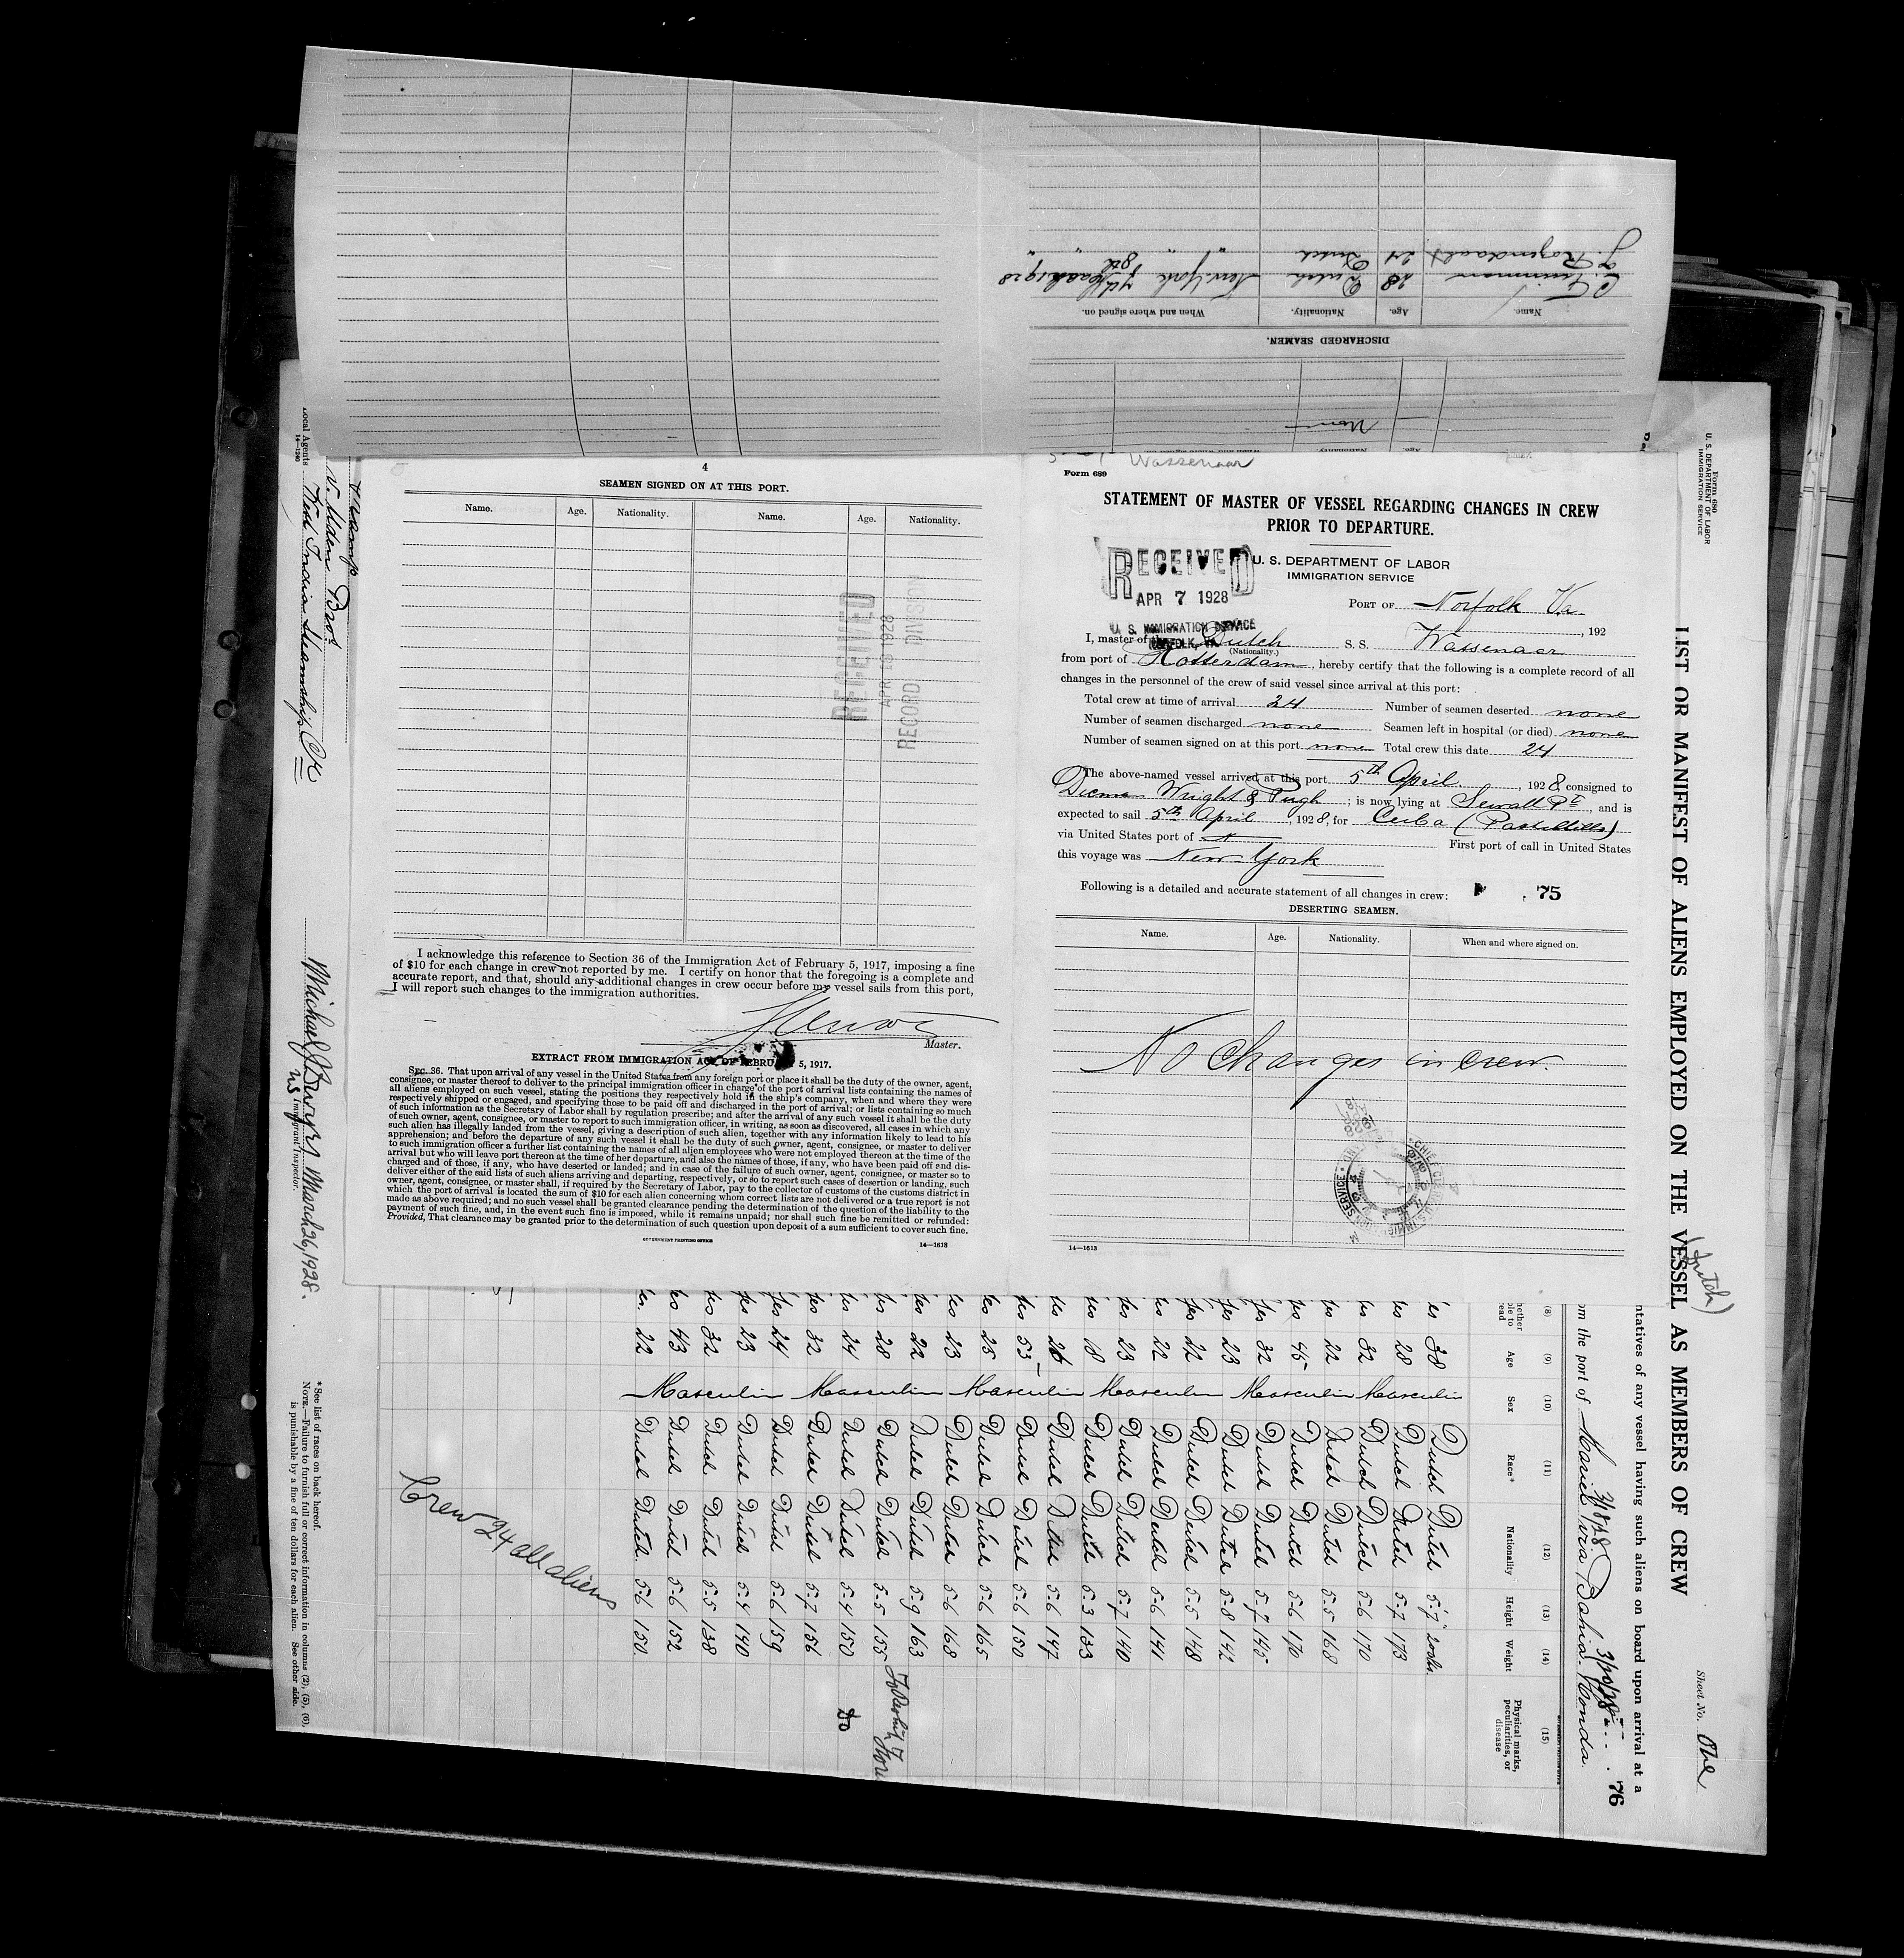 4
SEAMEN SIGNED ON AT THIS PORT.
Name. Age. Nationality. Name. Age. Nationality.
RECEIVED
APR 1928
RECORD DIVISION
I acknowledge this reference to Section 36 of the Immigration Act of February 5, 1917, imposing a fine
of $10 for each change in crew not reported by me. I certify on honor that the foregoing is a complete and
accurate report, and that, should any additional changes in crew occur before my vessel sails from this port,
I will report such changes to the immigration authorities.
Master.
EXTRACT FROM IMMIGRATION ACT OF FEBRUARY 5, 1917.
SEC. 36. That upon arrival of any vessel in the United States from any foreign port or place it shall be the duty of the owner, agent,
consignee, or master thereof to deliver to the principal immigration officer in charge of the port of arrival lists containing the names of
all aliens employed on such vessel, stating the positions they respectively hold in the ship's company, when and where they were
respectively shipped or engaged, and specifying those to be paid off and discharged in the port of arrival; or lists containing so much
of such information as the Secretary of Labor shall by regulation prescribe; and after the arrival of any such vessel it shall be the duty
of such owner, agent, consignee, or master to report to such immigration officer, in writing, as soon as discovered, all cases in which any
such alien has illegally landed from the vessel, giving a description of such alien, together with any information likely to lead to his
apprehension; and before the departure of any such vessel it shall be the duty of such owner, agent, consignee, or master to deliver
to such immigration officer a further list containing the names of all alien employees who were not employed thereon at the time of the
arrival but who will leave port thereon at the time of her departure, and also the names of those, if any, who have been paid off and dis-
charged and of those, if any, who have deserted or landed; and in case of the failure of such owner, agent, consignee, or master so to
deliver either of the said lists of such aliens arriving and departing, respectively, or so to report such cases of desertion or landing, such
owner, agent, consignee, or master shall, if required by the Secretary of Labor, pay to the collector of customs of the customs district in
which the port of arrival is located the sum of $10 for each alien concerning whom correct lists are not delivered or a true report is not
made as above required; and no such vessel shall be granted clearance pending the determination of the question of the liability to the
payment of such fine, and, in the event such fine is imposed, while it remains unpaid; nor shall such fine be remitted or refunded:
Provided, That clearance may be granted prior to the determination of such question upon deposit of a sum sufficient to cover such fine.
GOVERNMENT PRINTING OFFICE 14—1613
Wassenaar
Form 689
STATEMENT OF MASTER OF VESSEL REGARDING CHANGES IN CREW
PRIOR TO DEPARTURE.
U. S. DEPARTMENT OF LABOR
IMMIGRATION SERVICE
RECEIVED
APR 7 1928
U. S. IMMIGRATION SERVICE
NORFOLK, VA.
PORT OF Norfolk Va.
, 192
I, master of the Dutch S. S. Wassenaar
(Nationality.)
from port of Rotterdam, hereby certify that the following is a complete record of all
changes in the personnel of the crew of said vessel since arrival at this port:
Total crew at time of arrival 24 Number of seamen deserted none
Number of seamen discharged none Seamen left in hospital (or died) none
Number of seamen signed on at this port none Total crew this date 24
The above-named vessel arrived at this port 5th April, 1928 consigned to
Wright & Pugh; is now lying at Sewall Pt, and is
expected to sail 5th April, 1928, for Cuba
via United States port of First port of call in United States
this voyage was New York
Following is a detailed and accurate statement of all changes in crew: 75
DESERTING SEAMEN.
Name. Age. Nationality. When and where signed on.
No changes in crew.
14—1613
DISCHARGED SEAMEN.
Name. Age. Nationality. When and where signed on.
28 Dutch New York
J. Rozendaal 24 Dutch " "
Form 680
U. S. DEPARTMENT OF LABOR
IMMIGRATION SERVICE
Sheet No. One
LIST OR MANIFEST OF ALIENS EMPLOYED ON THE VESSEL AS MEMBERS OF CREW
(Dutch)
ntatives of any vessel having such aliens on board upon arrival at a
76
om the port of Mariel via Bahia Honda.
(8) (9) (10) (11) (12) (13) (14) (15)
Age Sex Race* Nationality Height Weight Physical marks, peculiarities, or disease
38 Masculin Dutch Dutch 5-7
28 Dutch Dutch 5-7 173
32 Dutch Dutch 5-6 170
22 Masculin Dutch Dutch 5-5 168
45 Dutch Dutch 5-6 170
32 Dutch Dutch 5-7 145
23 Dutch Dutch 5-8 142
22 Masculin Dutch Dutch 5-5 148
22 Dutch Dutch 5-6 141
23 Dutch Dutch 5-7 140
18 Dutch Dutch 5-3 133
26 Masculin Dutch Dutch 5-6 147
53 Dutch Dutch 5-6 150
25 Dutch Dutch 5-6 165
23 Dutch Dutch 5-6 168
22 Masculin Dutch Dutch 5-9 163
28 Dutch Dutch 5-5 155
24 Dutch Dutch 5-4 150 do
32 Dutch Dutch 5-7 156
24 Masculin Dutch Dutch 5-6 159
23 Dutch Dutch 5-4 140
32 Dutch Dutch 5-5 138
43 Dutch Dutch 5-6 152
22 Dutch Dutch 5-6 150
Crew 24 all aliens
v. Uden Bros
Local Agents West India Steamship Co
14—1240
Michael J Burns March 26, 1928.
Immigrant Inspector.
* See list of races on back hereof.
NOTE.—Failure to furnish full or correct information in columns (2), (5), (6),
is punishable by a fine of ten dollars for each alien. See other side.